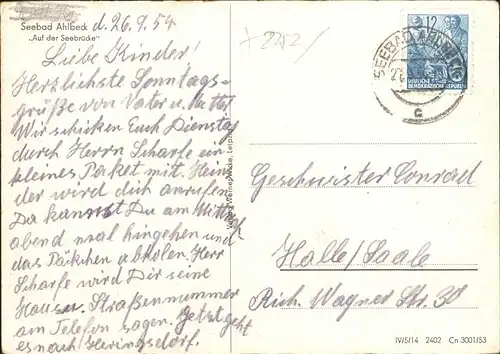 Seebad Ahlbeck d. 26.9.54
„Auf der Seebrücke"
Liebe Kinder!
Herzlichste Sonntags-
grüße von Vater u. Mutter
Wir schicken Euch Dienstag
durch Herrn Scharfe ein
kleines Paket mit.
der wird dich anrufen
Da kannst Du am Mittwoch
abend mal hingehen und
das Päckchen abholen. Herr
Scharfe wird Dir seine
Hausn. Straßennummer
am Telefon sagen. Jetzt geht
es nach Heringsdorf.
+ 2252/
12
SEEBAD AHLBECK
DEUTSCHE
DEMOKRATISCHE REPUBLIK
c
Geschwister Conrad
Halle/Saale
Rich. Wagner Str. 30
IV/5/14 2402 Cn 3001/53